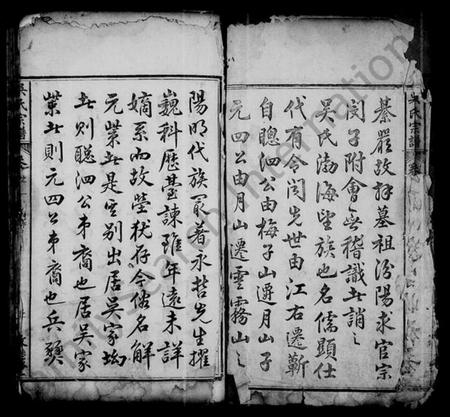 吳氏宗譜
綦嚴故拜墓祖汾陽求官宗
閔子附會無稽識者誚之
吳氏渤海望族也名儒顯仕
代有令聞先世由江右遷蘄
自聰泗公由梅子山遷月山子
元四公由月山遷雲霧山之
陽明代族最著永哲先生擢
巍科歷臺諫雖年遠未詳
嫡系而故塋猶存今儒名解
元業者是宜別出居吳家坳
者則聰泗公弟裔也居吳家
業者則元四公弟裔也兵燹
吳氏宗譜
卷